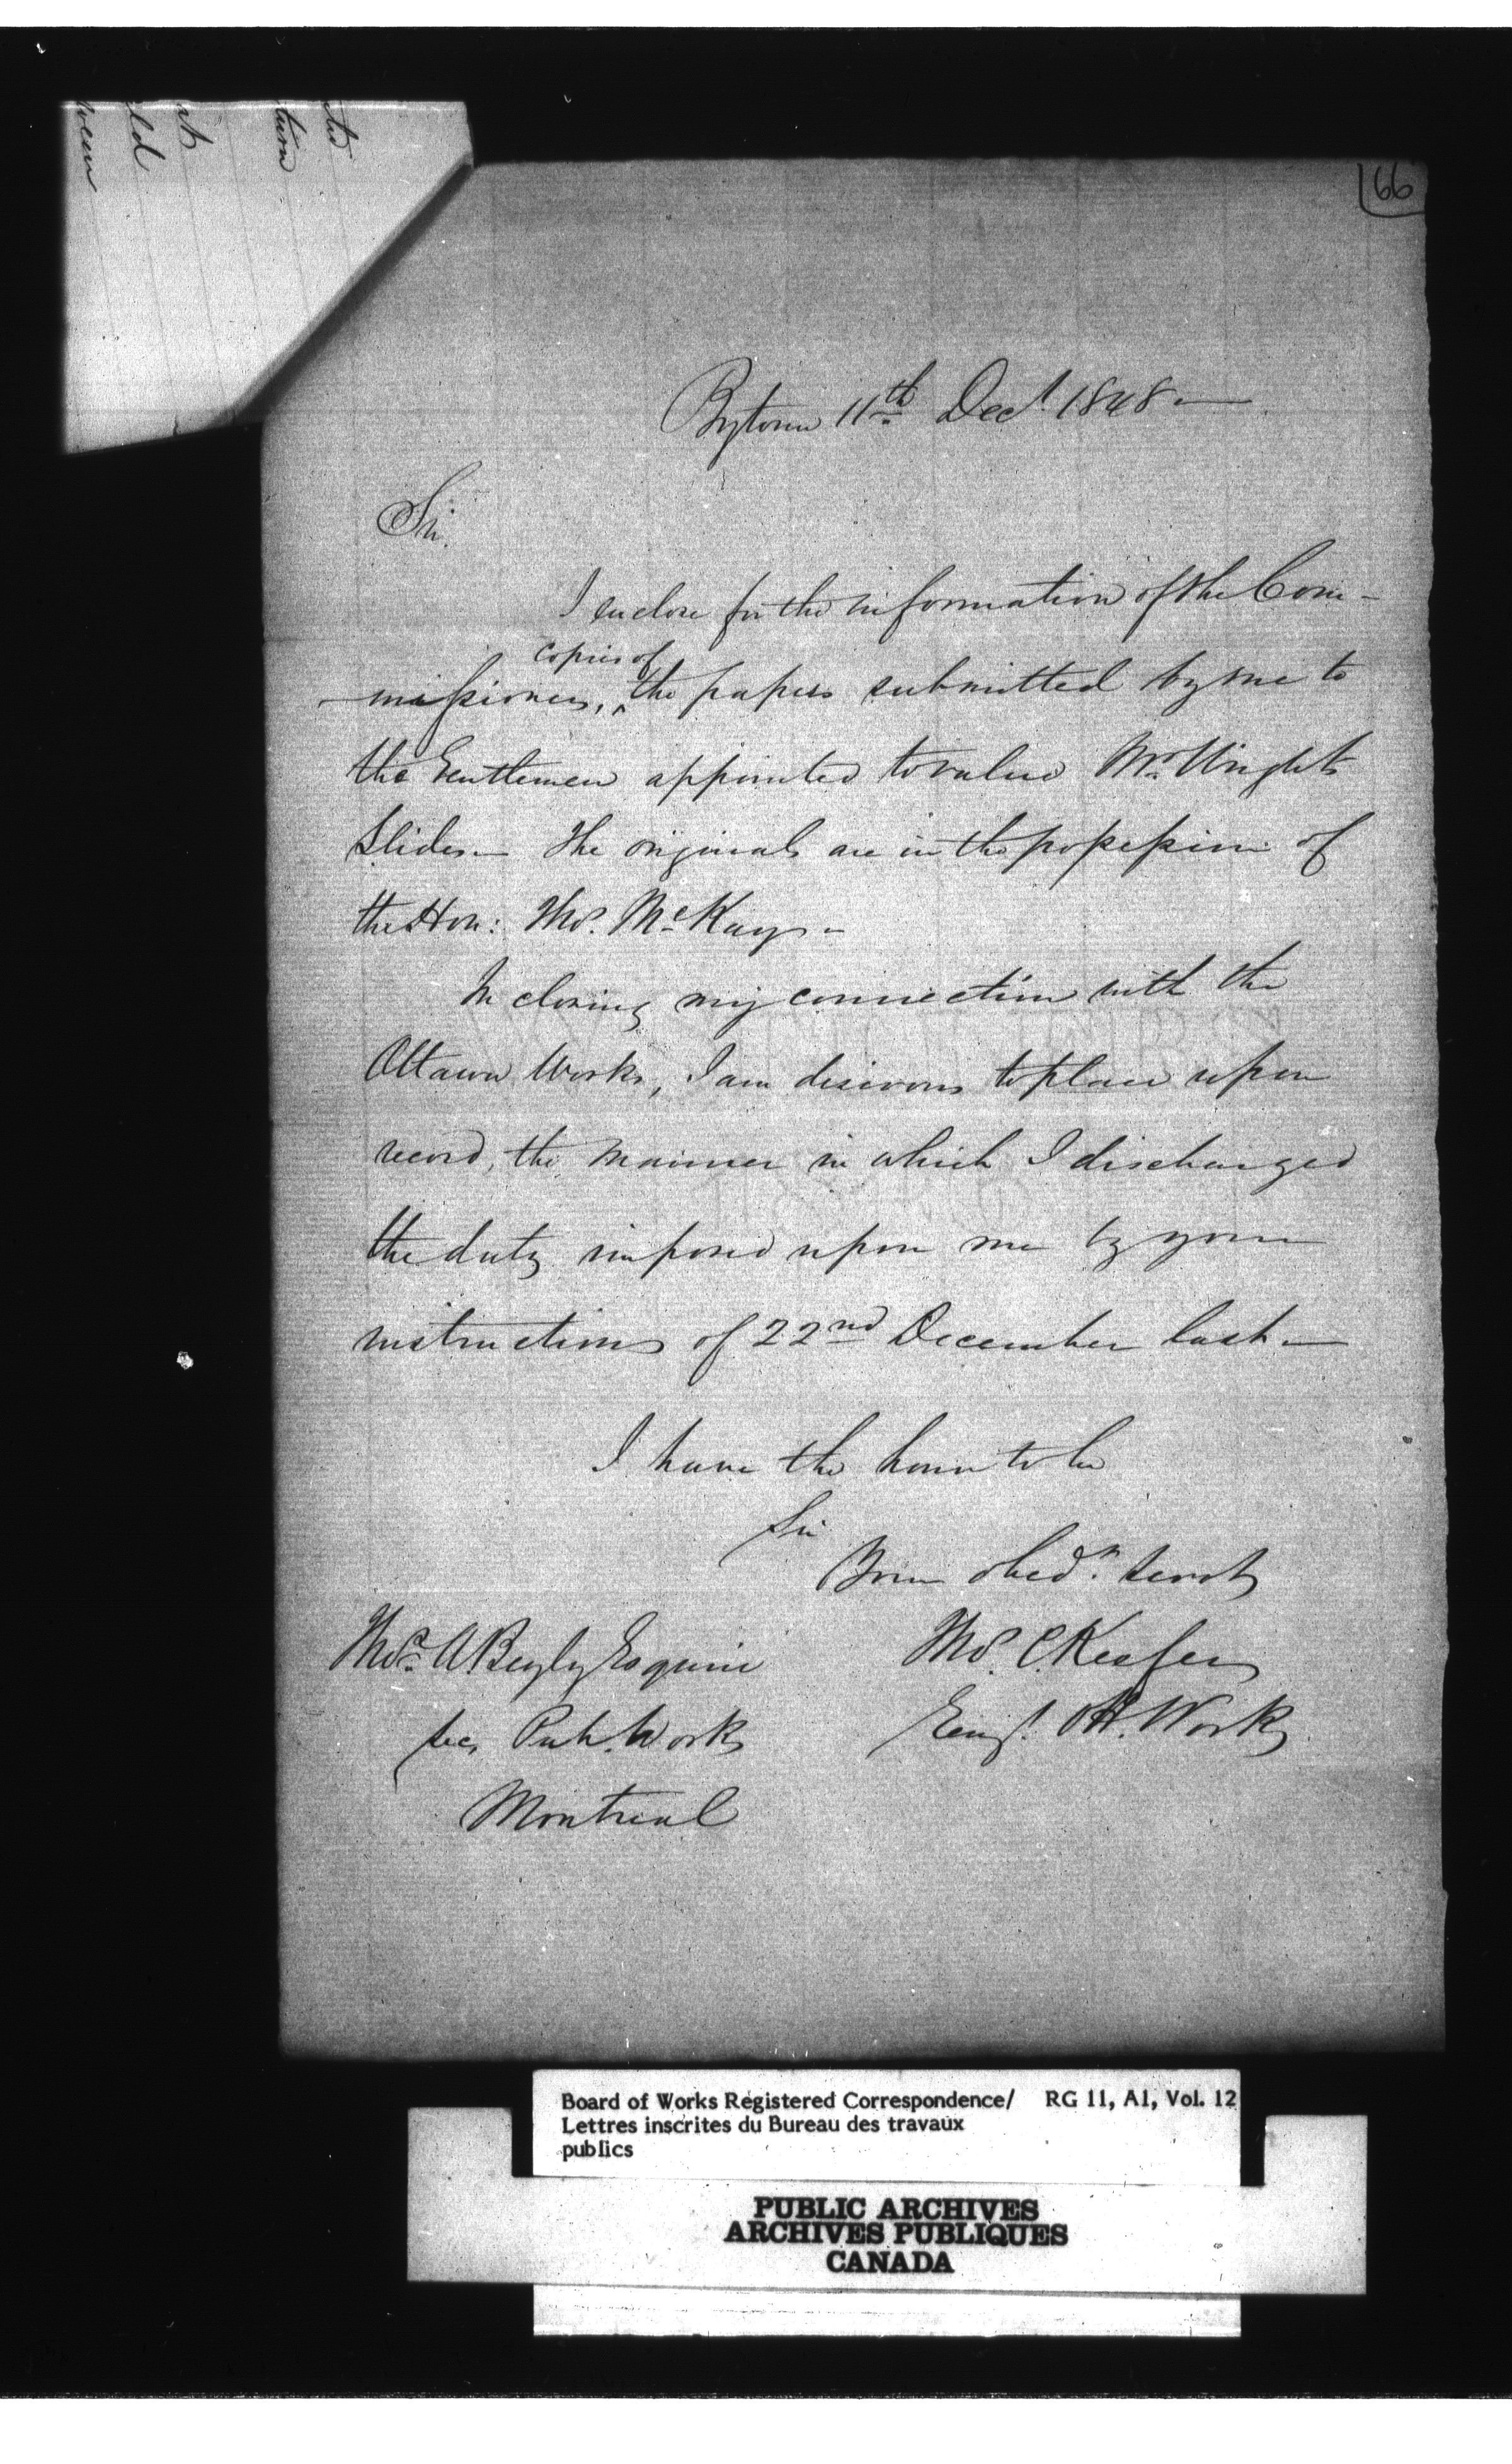 66
Bytown 11th Decr. 1848 —
Sir.
I enclose for the information of the Com-
copies of
-missioners, ^ the papers submitted by me to
the Gentlemen appointed to value Mr. Wright's
Slides — The originals are in the possession of
the Hon: Thos. McKay —
In closing my connection with the
Ottawa Works, I am desirous to place upon
record, the manner in which I discharged
the duty imposed upon me by your
instructions of 22nd December last —
I have the honor to be
Sir
Your obedt. servt
Thos. C. Keefer
Engr. Ott. Works
Thos. A Begly Esquire
Sec, Pub. Works
Montreal
Board of Works Registered Correspondence/ RG 11, A1, Vol. 12
Lettres inscrites du Bureau des travaux
publics
PUBLIC ARCHIVES
ARCHIVES PUBLIQUES
CANADA